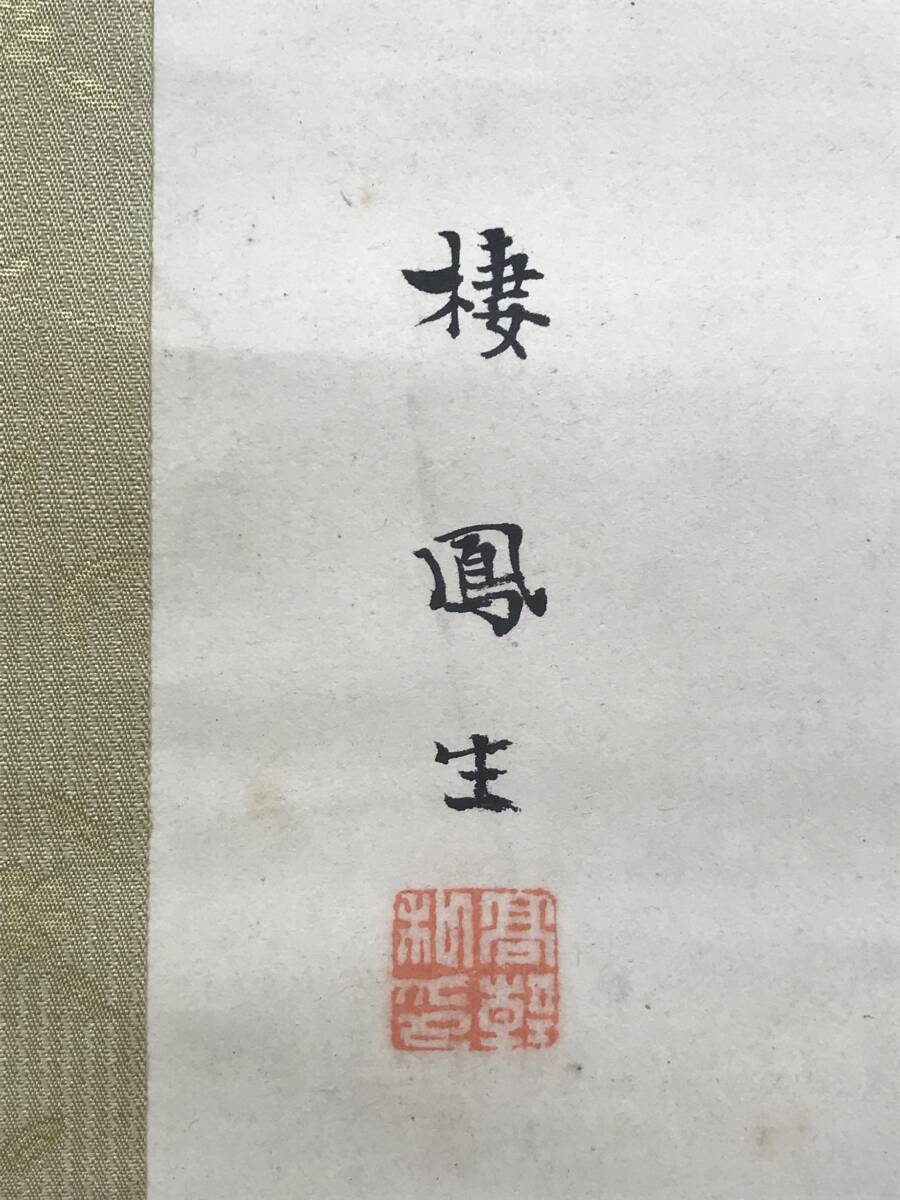 棲鳳生